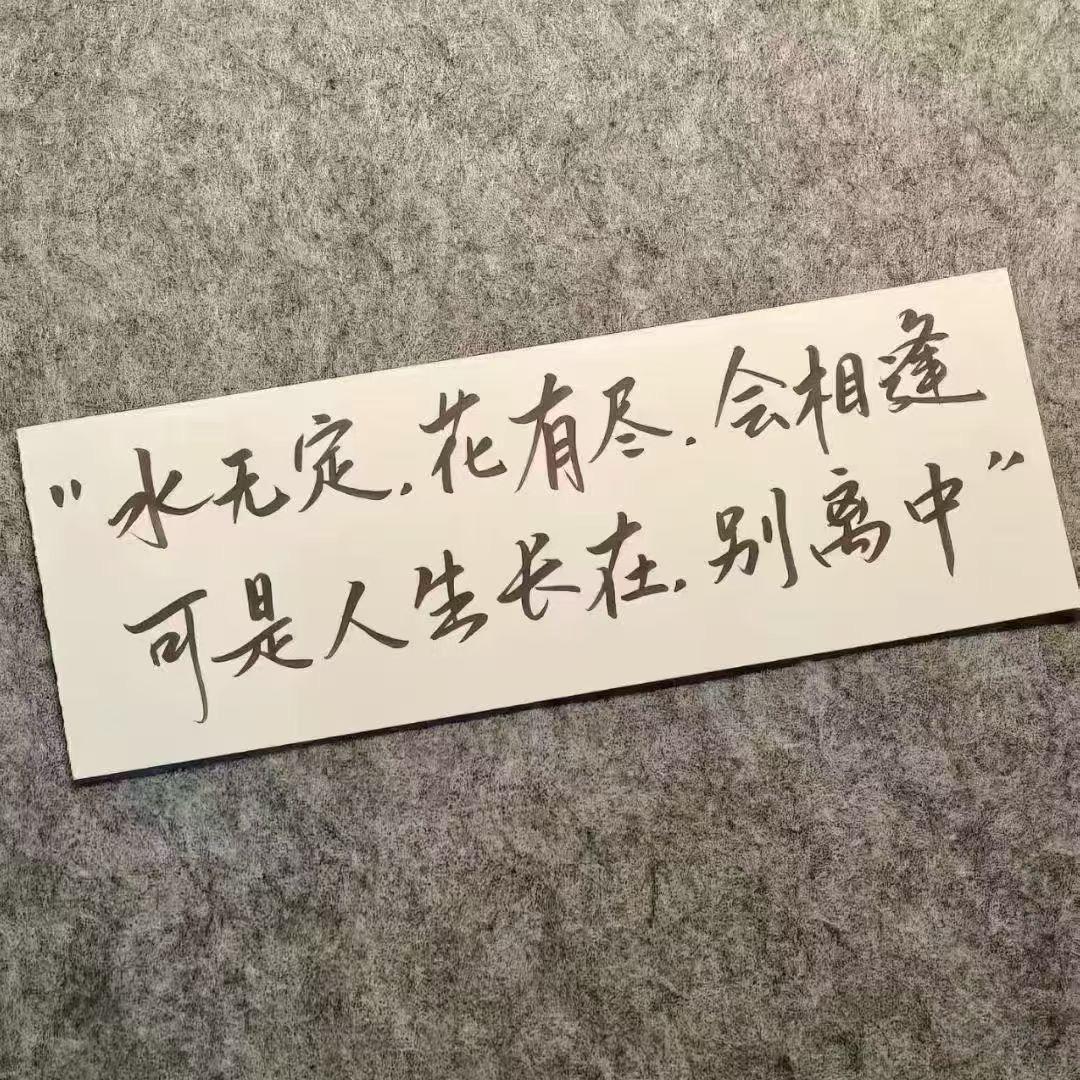 "水无定,花有尽.会相逢
可是人生长在,别离中"